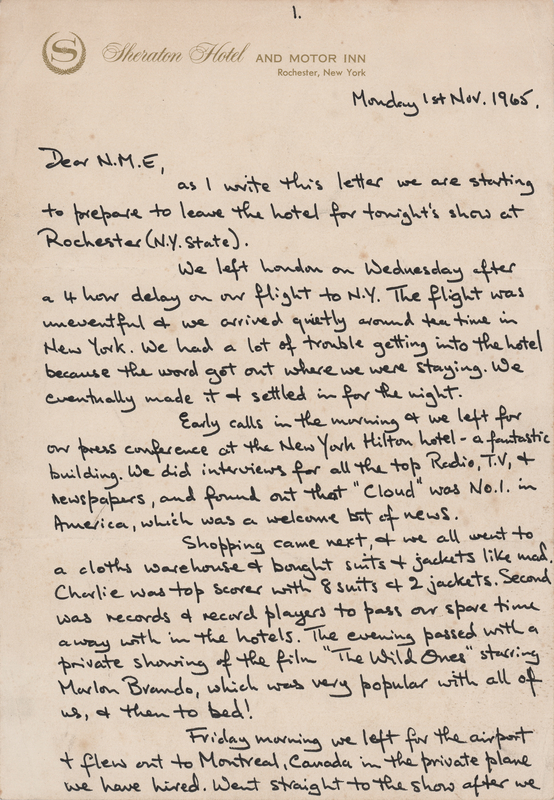 1.
S
Sheraton Hotel AND MOTOR INN
Rochester, New York
Monday 1st Nov. 1965.
Dear N.M.E,
as I write this letter we are starting
to prepare to leave the hotel for tonight's show at
Rochester (N.Y. State).
We left London on Wednesday after
a 4 hour delay on our flight to N.Y. The flight was
uneventful & we arrived quietly around tea time in
New York. We had a lot of trouble getting into the hotel
because the word got out where we were staying. We
eventually made it & settled in for the night.
Early calls in the morning & we left for
our press conference at the New York Hilton hotel - a fantastic
building. We did interviews for all the top Radio, T.V, &
newspapers, and found out that "Cloud" was No.1. in
America, which was a welcome bit of news.
Shopping came next, & we all went to
a cloths warehouse & bought suits & jackets like mad.
Charlie was top scorer with 8 suits & 2 jackets. Second
was records & record players to pass our spare time
away with in the hotels. The evening passed with a
private showing of the film "The Wild Ones" starring
Marlon Brando, which was very popular with all of
us, & then to bed!
Friday morning we left for the airport
& flew out to Montreal, Canada in the private plane
we have hired. Went straight to the show after we